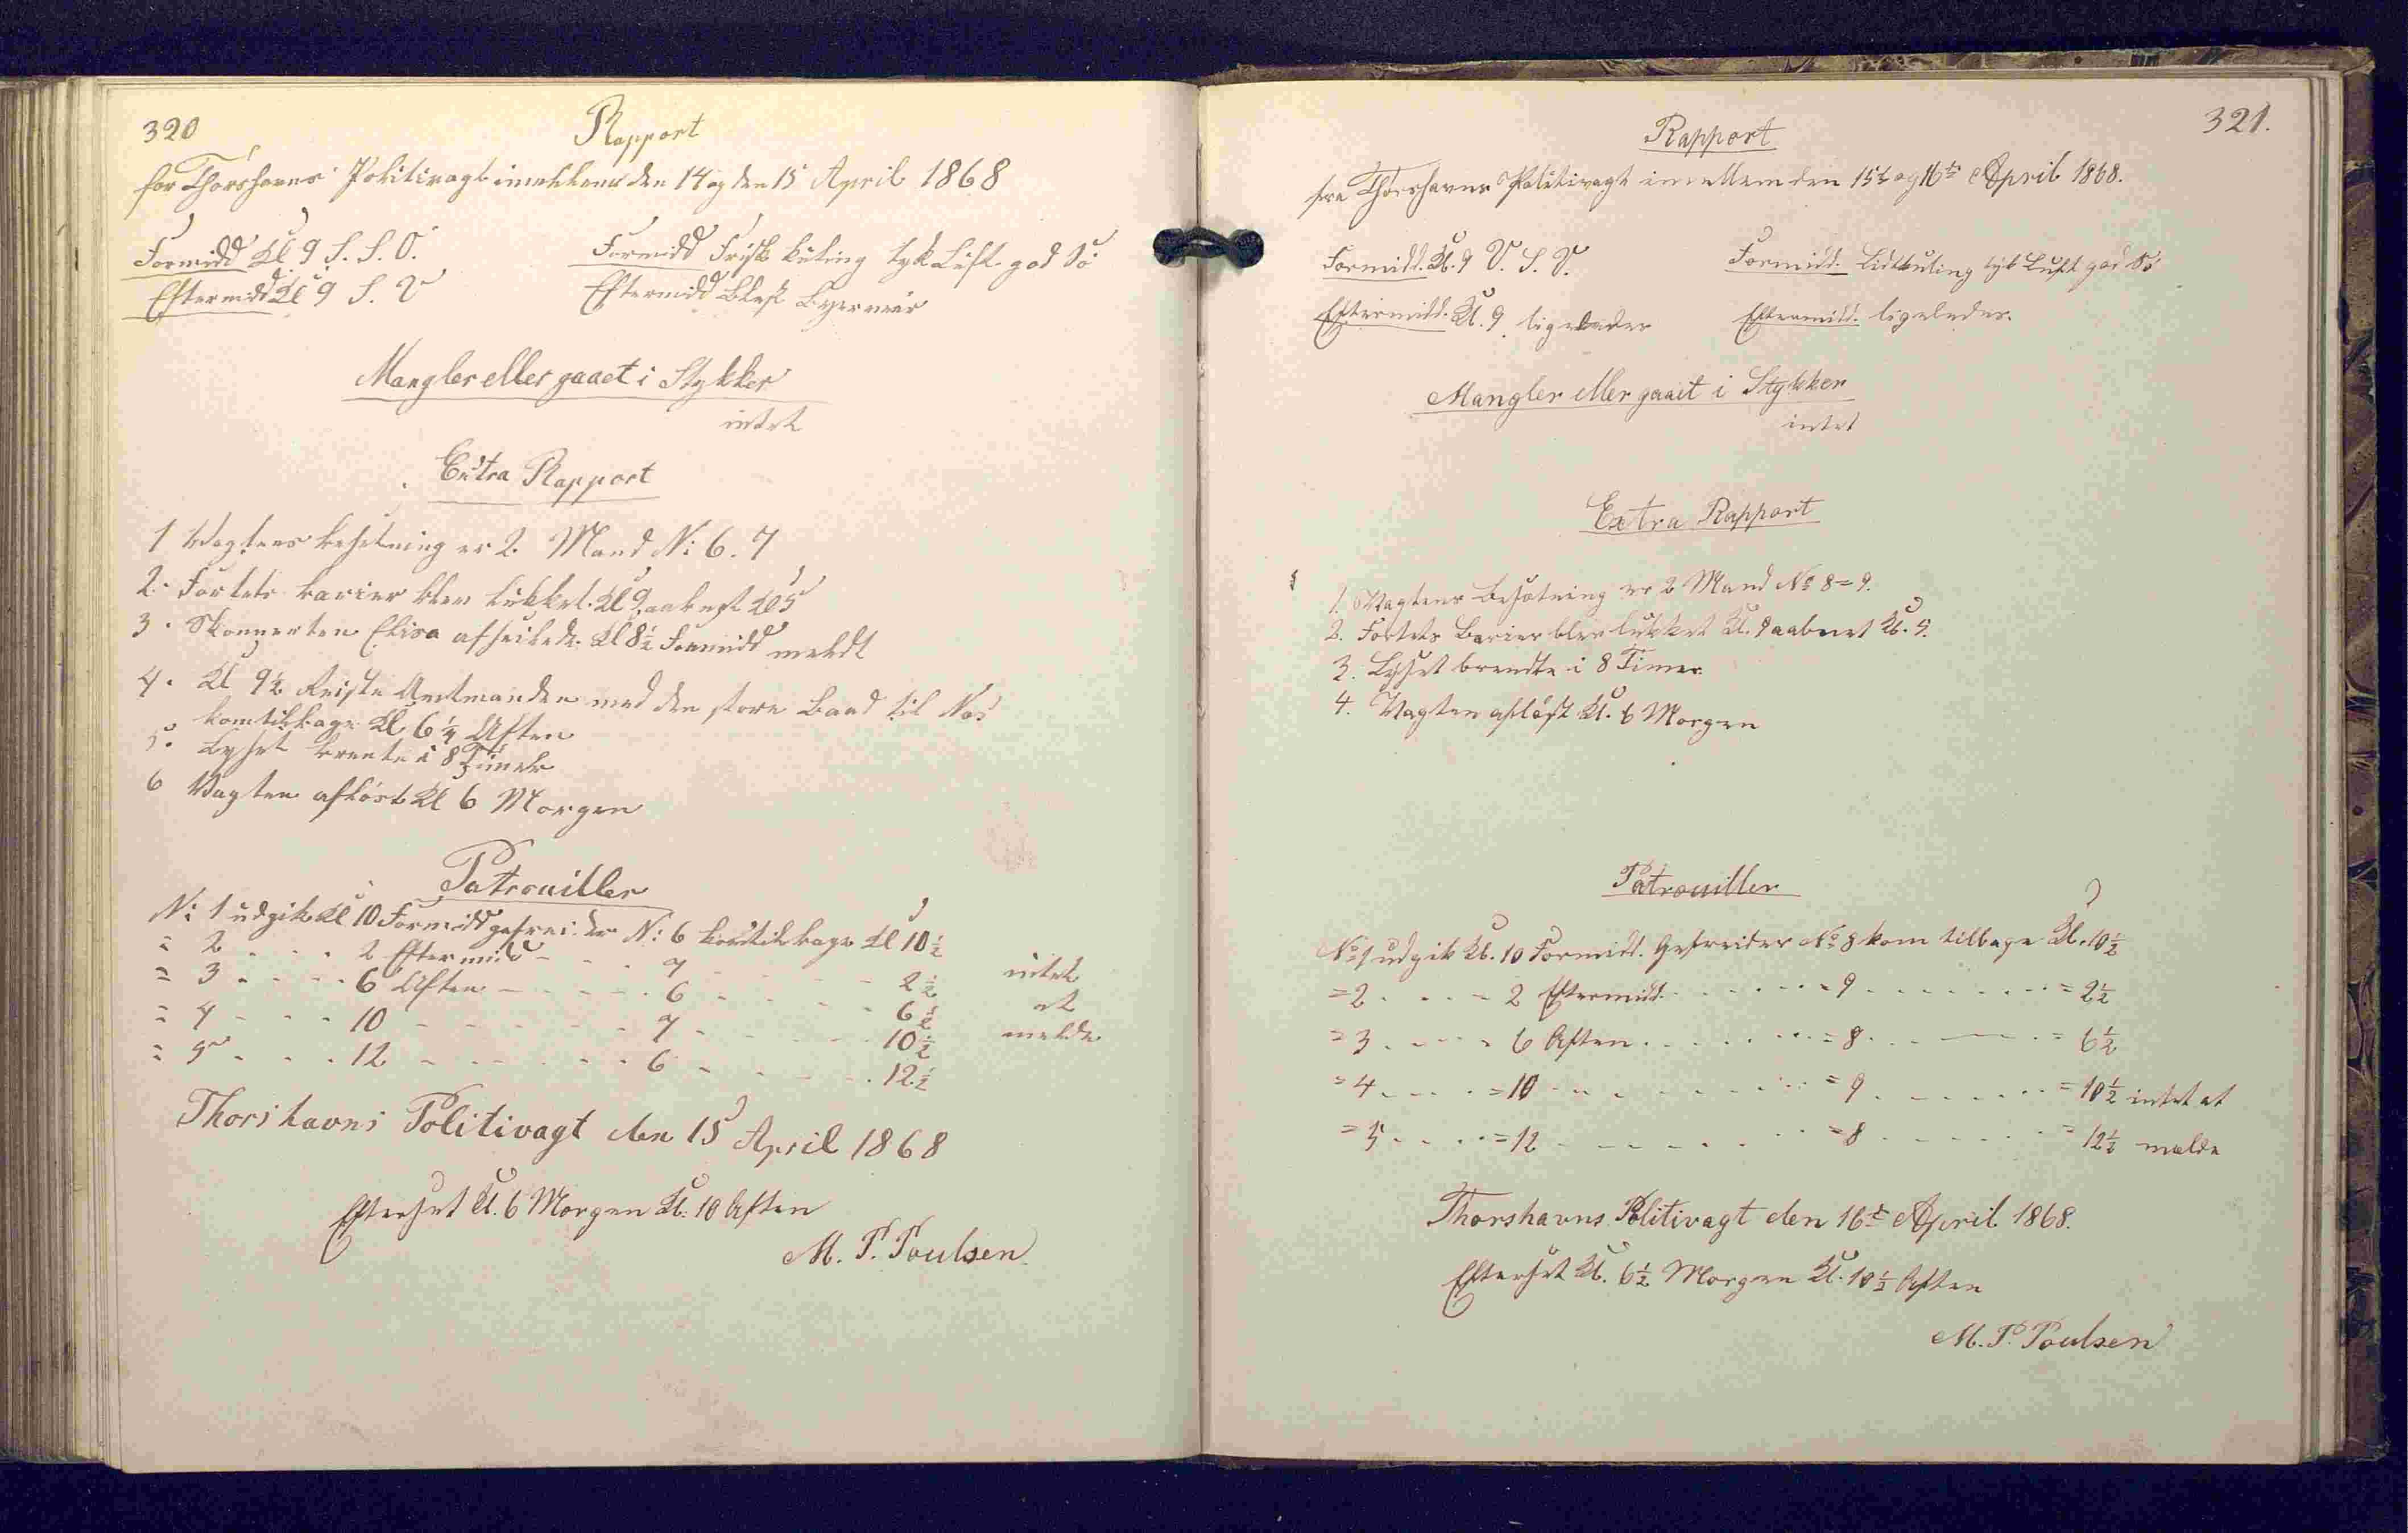 320
Rapport
for Thorshavns Politivagt imellem den 14 og den 15 April 1868
Formidd Kl 9 S. S. O.
Eftermidd Kl 9 S. V
Formidd Frisk kuling tyk Luft god Sö
Eftermidd Blæst
Mangler eller gaaet i Stykker
intet
Extra Rapport
1 Vagtens besetning er 2. Mand N: 6. 7
2. Fortets barier blev lukket. Kl 9 aabnest Kl 5
3. Skonnerten Elisa afseilede. Kl 8½ Formidd meldt
4. Kl 9½ Reiste Amtmanden med den store Baad til Næs
kom tilbage Kl 6¼ Aften
5. Lyset brente i 8 Timer
6 Vagten aflöst Kl 6 Morgen
Patrouiller
N: 1 udgik Kl 10 Formidd gefreider N: 6 kom tilbage Kl 10½
= 2 - - - 2 Eftermidd - - - 7 - - - 2½ intet
= 3 - - - 6 Aften - - - 6 - - - 6½ at
= 4 - - - 10 - - - 7 - - - 10½ melde
= 5 - - - 12 - - - 6 - - - 12½
Thorshavns Politivagt den 15 April 1868
Efterset Kl. 6 Morgen Kl. 10 Aften
M. P. Poulsen
321.
Rapport
fra Thorshavns Politivagt imellem den 15t og 16t April 1868.
Formidd. Kl. 9 V. S. V.
Eftermidd. Kl. 9 ligeledes
Formidd. Lidt kuling tyk Luft god Sö
Eftermidd. ligeledes.
Mangler eller gaaet i Stykker
intet
Extra Rapport
1. Vagtens Besætning er 2 Mand No 8=9.
2. Fortets Barier blev lukket Kl. 9 aabnet Kl. 5.
3. Lyset brendte i 8 Timer
4. Vagten aflöst Kl. 6 Morgen
Patrouiller
No 1 udgik Kl. 10 Formidd. Gefreider No 8 kom tilbage Kl. 10½
=2 - - - 2 Eftermidd. - - - =9 - - - = 2½
=3 - - - 6 Aften - - - =8 - - - = 6½
=4 - - - =10 - - - =9 - - - =10½ intet at
=5 - - - =12 - - - =8 - - - = 12½ melde
Thorshavns Politivagt den 16t April 1868.
Efterset Kl. 6½ Morgen Kl. 10½ Aften
M. P. Poulsen